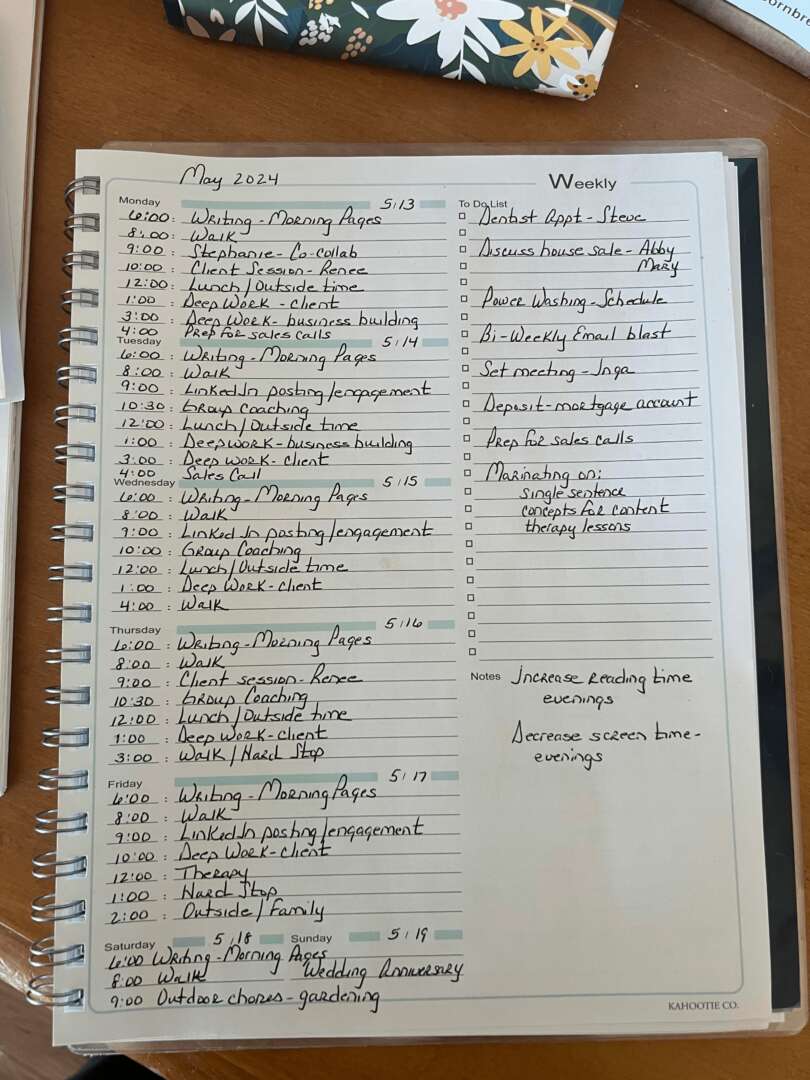 ornbre
May 2024
Weekly
Monday 5/13
6:00: Writing - Morning Pages
8:00: Walk
9:00: Stephanie - Co-collab
10:00: Client Session - Renee
12:00: Lunch/Outside time
1:00: Deep Work - client
3:00: Deep Work - business building
4:00 Prep for sales calls
Tuesday 5/14
6:00: Writing - Morning Pages
8:00: Walk
9:00: LinkedIn posting/engagement
10:30: Group Coaching
12:00: Lunch/Outside time
1:00: Deep work - business building
3:00: Deep work - client
4:00 Sales Call
Wednesday 5/15
6:00: Writing - Morning Pages
8:00: Walk
9:00: LinkedIn posting/engagement
10:00: Group Coaching
12:00: Lunch/Outside time
1:00: Deep Work - client
4:00: Walk
Thursday 5/16
6:00: Writing - Morning Pages
8:00: Walk
9:00: Client session - Renee
10:30: Group Coaching
12:00: Lunch/Outside time
1:00: Deep Work - client
3:00: Walk/Hard Stop
Friday 5/17
6:00: Writing - Morning Pages
8:00: Walk
9:00: LinkedIn posting/engagement
10:00: Deep Work - client
12:00: Therapy
1:00: Hard Stop
2:00: Outside/Family
Saturday 5/18 Sunday 5/19
6:00 Writing - Morning Pages
8:00 Walk Wedding Anniversary
9:00 Outdoor chores - gardening
To Do List
Dentist Appt - Steve
Discuss house sale - Abby
Mary
Power Washing - Schedule
Bi-Weekly Email blast
Set meeting - Inga
Deposit - mortgage account
Prep for sales calls
Marinating on:
single sentence
concepts for content
therapy lessons
Notes Increase Reading time
evenings
Decrease screen time -
evenings
KAHOOTIE CO.